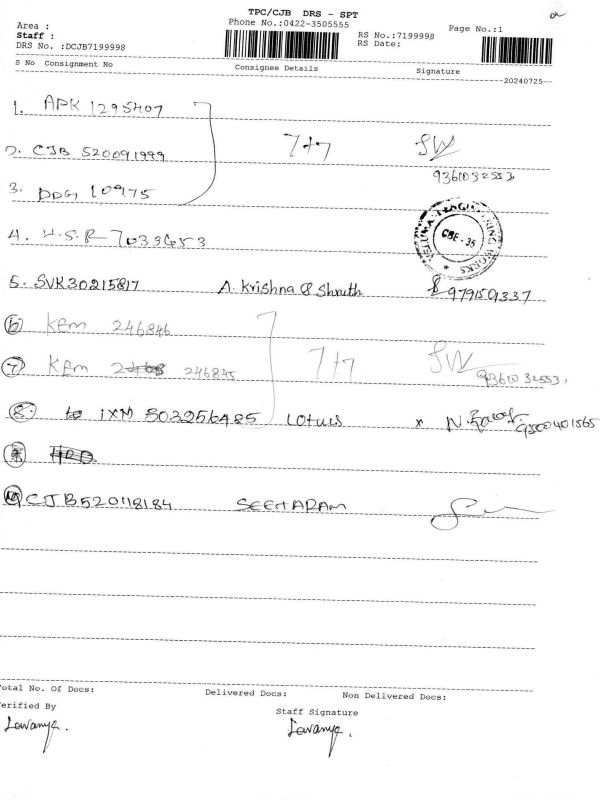 TPC/CJB DRS - SPT
Area :
Phone No.:0422-3505555
Page No.:1
Staff :
RS No.:7199998
DRS No. :DCJB7199998
RS Date:
S No Consignment No Consignee Details Signature
20240725
1. APK 1295407
2. CJB 520091999 7+7
9361032553
3. DDG 109175
4. H.S.R 7033653
CBE-35
5. SVK30215817 A. Krishna & Shruth 9791509337
6 KEM 246846
7 KEM 246845 7+7 9361032553
8. IXM 503256485 Lotus x 9500401565
10 CJB520118184 SEETARAM
Total No. Of Docs: Delivered Docs: Non Delivered Docs:
Verified By Staff Signature
Lavanya. Lavanya.